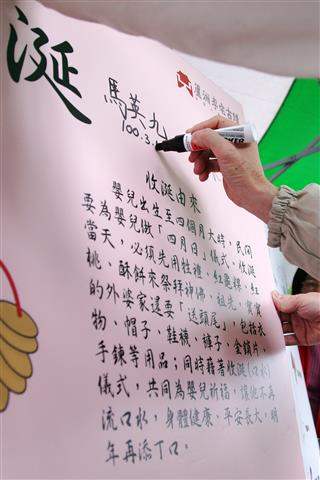 涎
馬英九
100.3.
收涎由來
嬰兒出生至四個月大時，民間
要為嬰兒做「四月日」儀式，收涎
當天，必須先用牲禮、紅龜粿、紅
桃、酥餅來祭拜神佛、祖先，寶寶
的外婆家還要「送頭尾」，包括衣
物、帽子、鞋襪、褲子、金鎖片、
手鍊等用品；同時藉著收涎(口水)
儀式，共同為嬰兒祈福，讓他不再
流口水，身體健康、平安長大，明
年再添丁口。